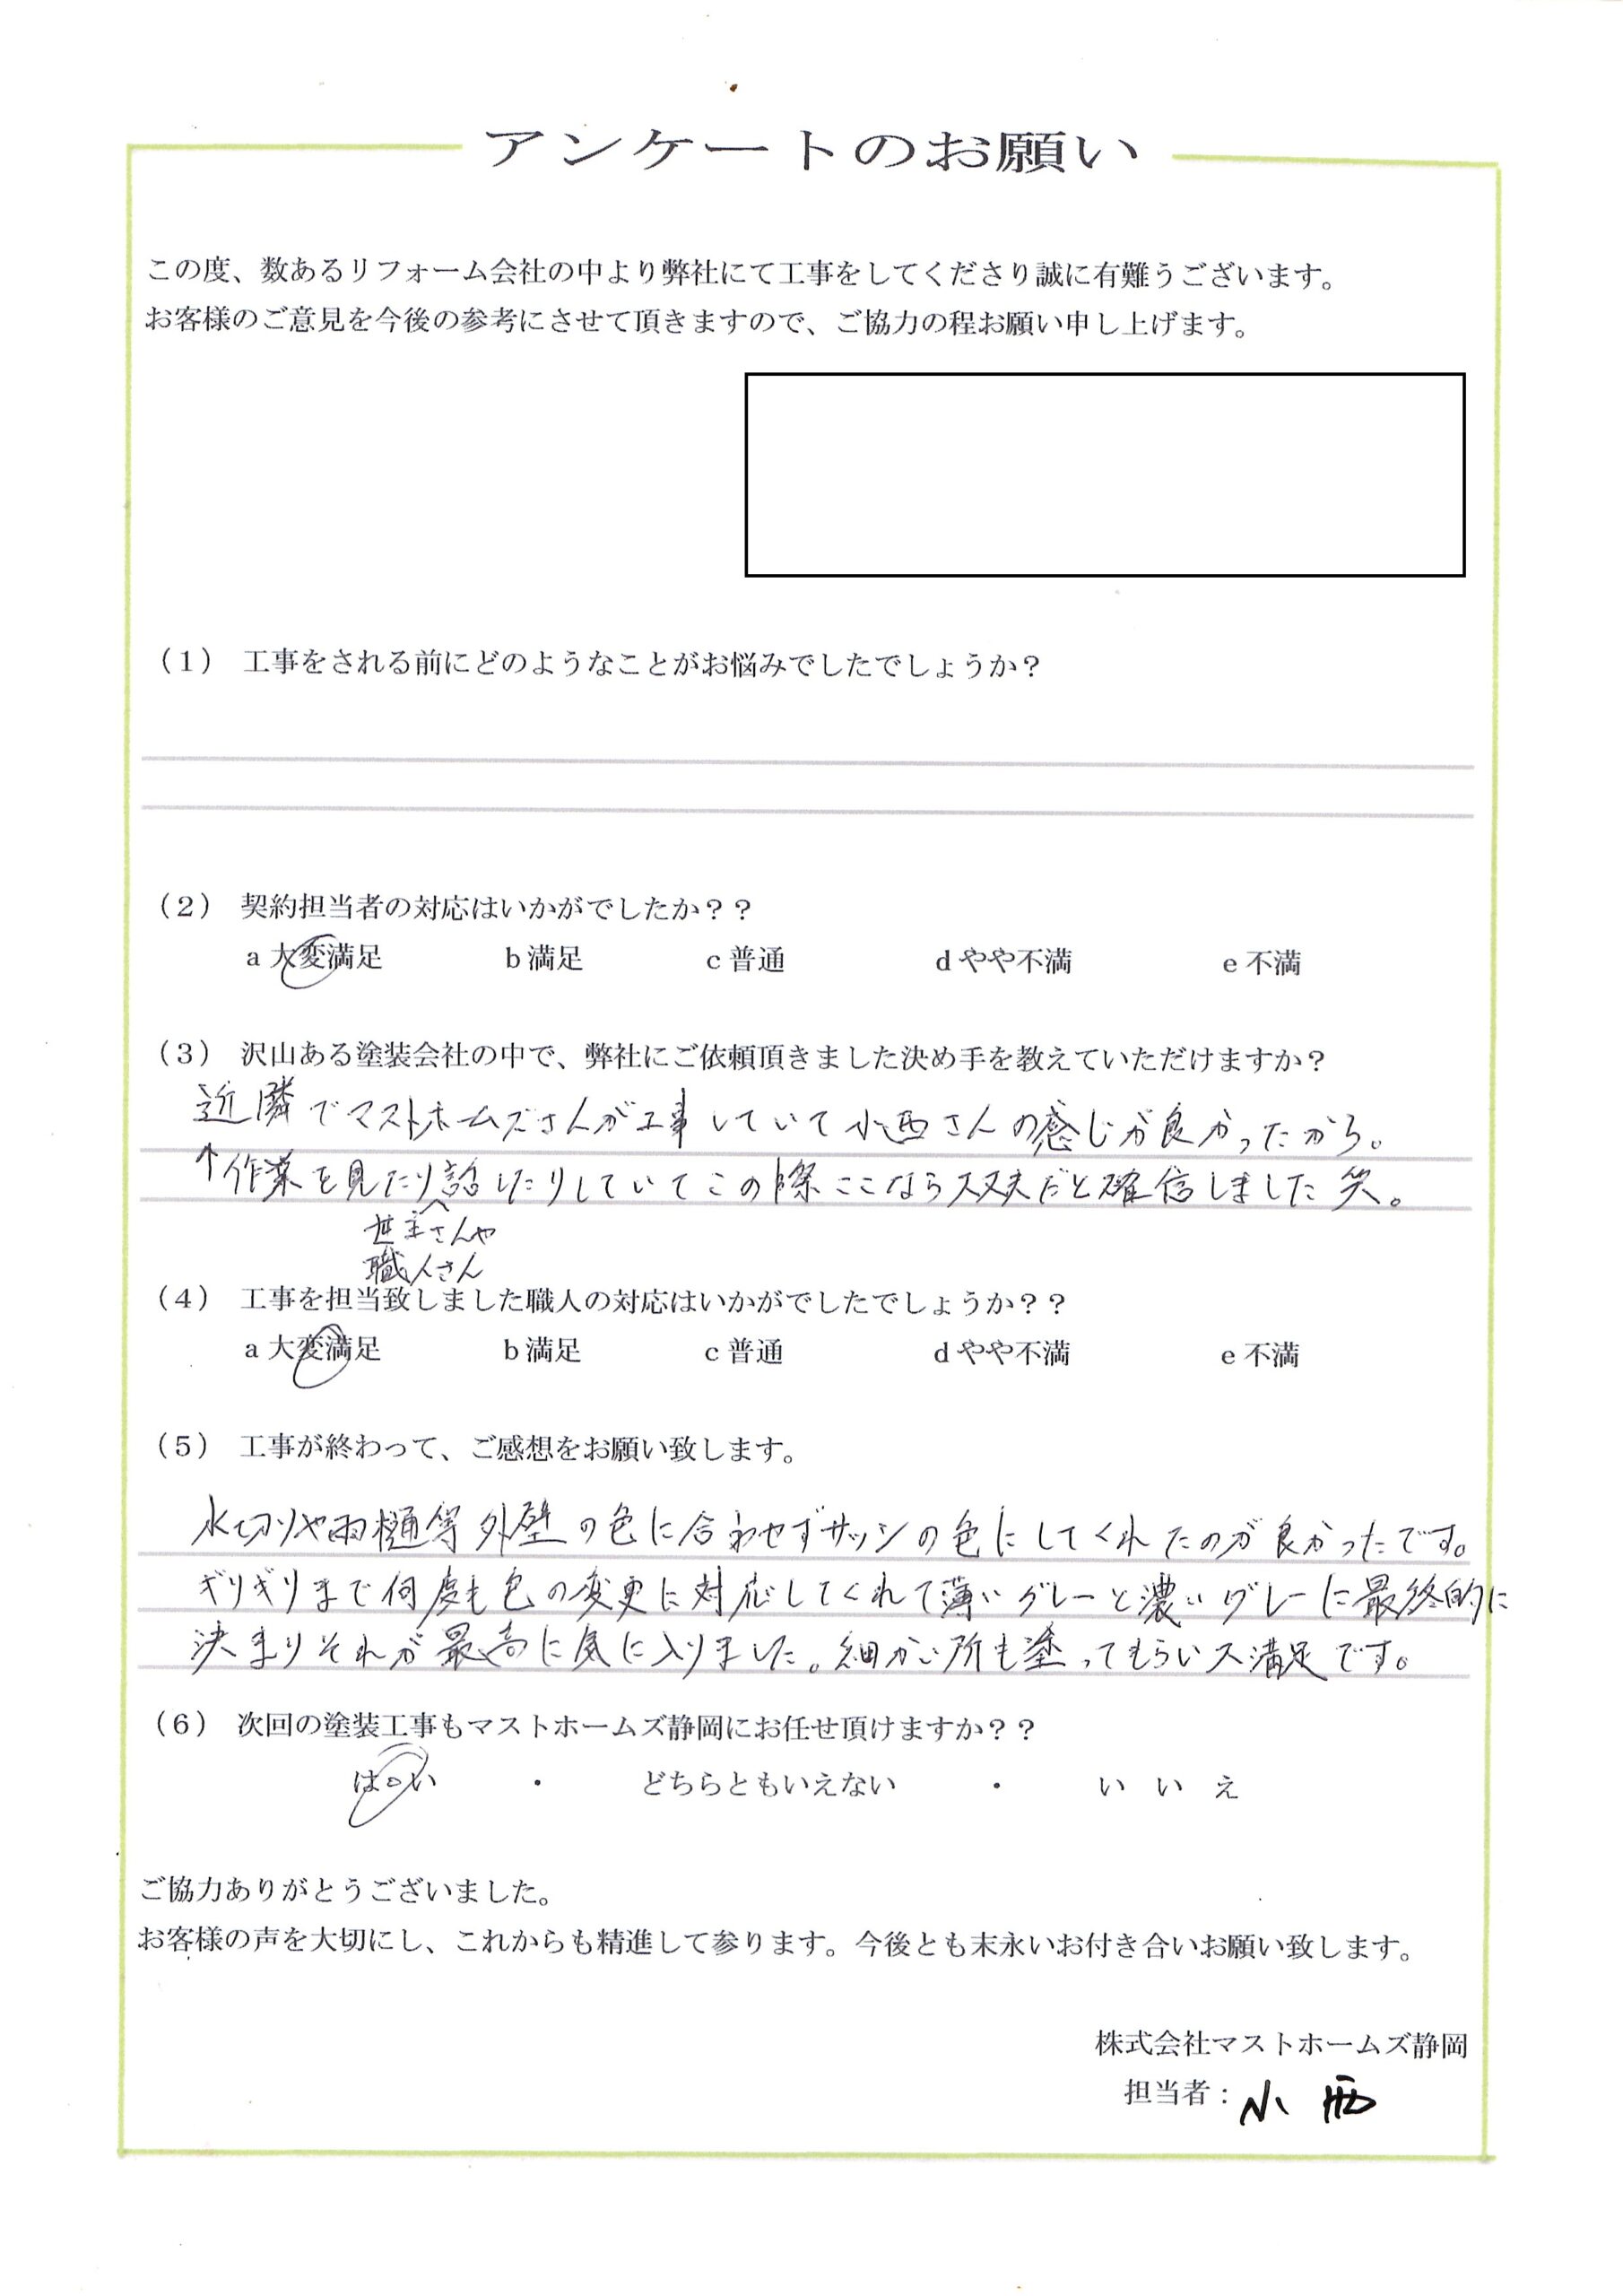 アンケートのお願い
この度、数あるリフォーム会社の中より弊社にて工事をしてくださり誠に有難うございます。
お客様のご意見を今後の参考にさせて頂きますので、ご協力の程お願い申し上げます。
（１） 工事をされる前にどのようなことがお悩みでしたでしょうか？
（２） 契約担当者の対応はいかがでしたか？？
a 大変満足 b 満足 c 普通 d やや不満 e 不満
（３） 沢山ある塗装会社の中で、弊社にご依頼頂きました決め手を教えていただけますか？
近隣でマストホームズさんが工事していて小西さんの感じが良かったから。
↑作業を見たり話したりしていてこの際ここなら大丈夫だと確信しました笑。
さんや
職人さん
（４） 工事を担当致しました職人の対応はいかがでしたでしょうか？？
a 大変満足 b 満足 c 普通 d やや不満 e 不満
（５） 工事が終わって、ご感想をお願い致します。
水切りや雨樋等外壁の色に合わせずサッシの色にしてくれたのが良かったです。
ギリギリまで何度も色の変更に対応してくれて薄いグレーと濃いグレーに最終的に
決まりそれが最高に気に入りました。細かい所も塗ってもらい大満足です。
（６） 次回の塗装工事もマストホームズ静岡にお任せ頂けますか？？
は い ・ どちらともいえない ・ い い え
ご協力ありがとうございました。
お客様の声を大切にし、これからも精進して参ります。今後とも末永いお付き合いお願い致します。
株式会社マストホームズ静岡
担当者：小西